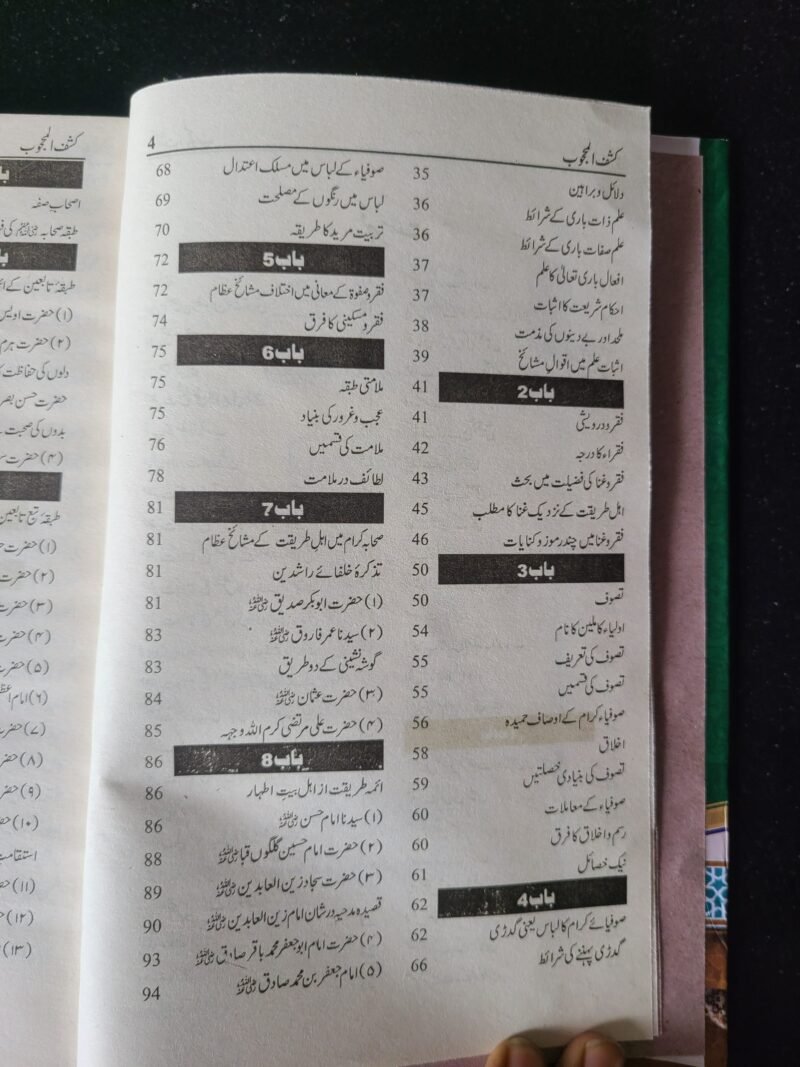 کشف المحجوب
4
دلائل و براہین 35
علم ذات باری کے شرائط 36
علم صفات باری کے شرائط 36
افعال باری تعالیٰ کا علم 37
احکام شریعت کا اثبات 37
ملحد اور بے دینوں کی مذمت 38
اثبات علم میں اقوال مشائخ 39
باب 2 41
فقر و درویشی 41
فقراء کا درجہ 42
فقر و غنا کی فضیلت میں بحث 43
اہل طریقت کے نزدیک غنا کا مطلب 45
فقر و غنا میں چند رموز و کنایات 46
باب 3 50
تصوف 50
اولیاء کاملین کا نام 54
تصوف کی تعریف 55
تصوف کی قسمیں 55
صوفیاء کرام کے اوصاف حمیدہ 56
اخلاق 58
تصوف کی بنیادی خصلتیں 59
صوفیاء کے معاملات 60
رسم و اخلاق کا فرق 60
نیک خصائل 61
باب 4 62
صوفیائے کرام کا لباس یعنی گدڑی 62
گدڑی پہننے کی شرائط 66
صوفیاء کے لباس میں مسلک اعتدال 68
لباس میں رنگوں کے مصلحت 69
تربیت مرید کا طریقہ 70
باب 5 72
فقر و صفوۃ کے معانی میں اختلاف مشائخ عظام 72
فقر و مسکینی کا فرق 74
باب 6 75
ملامتی طبقہ 75
عجب و غرور کی بنیاد 75
ملامت کی قسمیں 76
لطائف در ملامت 78
باب 7 81
صحابہ کرام میں اہل طریقت کے مشائخ عظام 81
تذکرۂ خلفائے راشدین 81
(۱) حضرت ابوبکر صدیق رضی اللہ عنہ 81
(۲) سیدنا عمر فاروق رضی اللہ عنہ 83
گوشہ نشینی کے دو طریق 83
(۳) حضرت عثمان رضی اللہ عنہ 84
(۴) حضرت علی مرتضی کرم اللہ وجہہ 85
باب 8 86
ائمہ طریقت از اہل بیت اطہار 86
(۱) سیدنا امام حسن رضی اللہ عنہ 86
(۲) حضرت امام حسین گلگوں قبا رضی اللہ عنہ 88
(۳) حضرت سجاد زین العابدین رضی اللہ عنہ 89
قصیدہ مدحیہ در شان امام زین العابدین رضی اللہ عنہ 90
(۴) حضرت امام ابو جعفر محمد باقر صادق رضی اللہ عنہ 93
(۵) امام جعفر بن محمد صادق رضی اللہ عنہ 94
کشف المحجوب
اصحاب صفہ
طبقہ صحابہ
طبقۂ تابعین کے
(۱) حضرت اویس
(۲) حضرت ہرم
دلوں کی حفاظت
حضرت حسن
بدوں کی صحبت
(۴) حضرت
طبقۂ تبع تابعین
(۱) حضرت
(۲) حضرت
(۳) حضرت
(۴) حضرت
(۵) حضرت
(۶) امام
(۷) حضرت
(۸)
(۹)
(۱۰)
(۱۱)
(۱۲)
(۱۳)